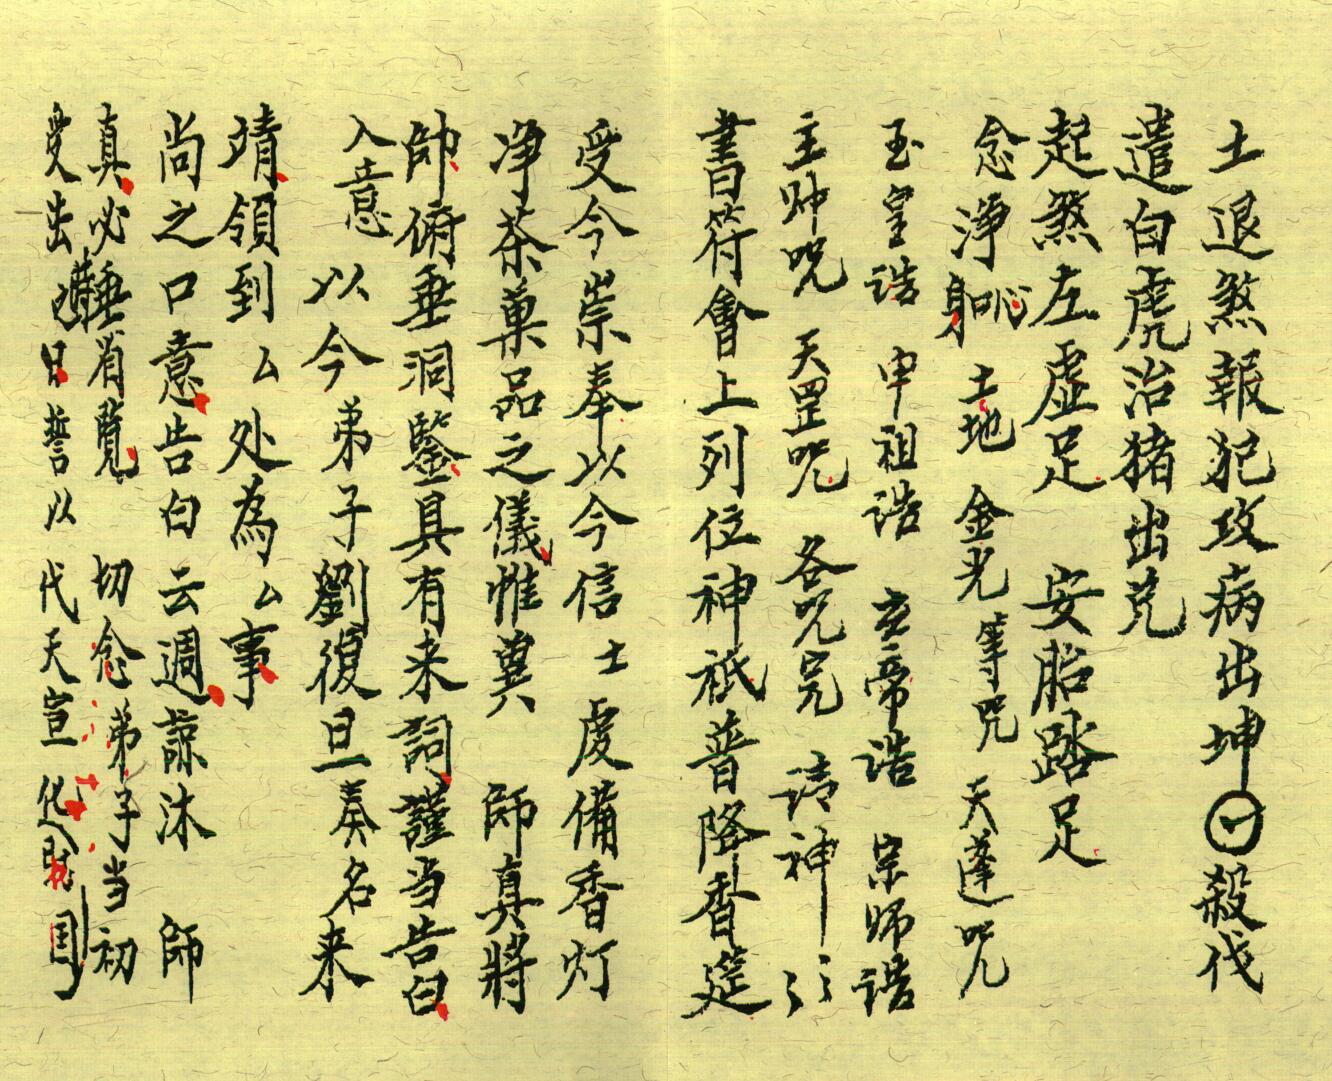 土退煞報犯攻病出坤㊀殺伐
遣白虎治猪出兑
起煞左虚足 安胎踏足
念淨身吣 土地 金光等咒 天蓬咒
玉皇诰 申祖诰 玄帝诰 宗师诰
主帅咒 天罡咒 各咒完 请神
書符會上列位神祇普降香筵
受今崇奉以今信士虔備香灯
净茶菓品之儀惟奠 師真將
帥俯垂洞鑒具有来詞謹当告白
入意 以今弟子劉復旦奏名来
靖領到厶处為厶事
尚之口意告白云週諒沐 師
真必垂省覧 切念弟子当初
受出 日誓以代天宣化